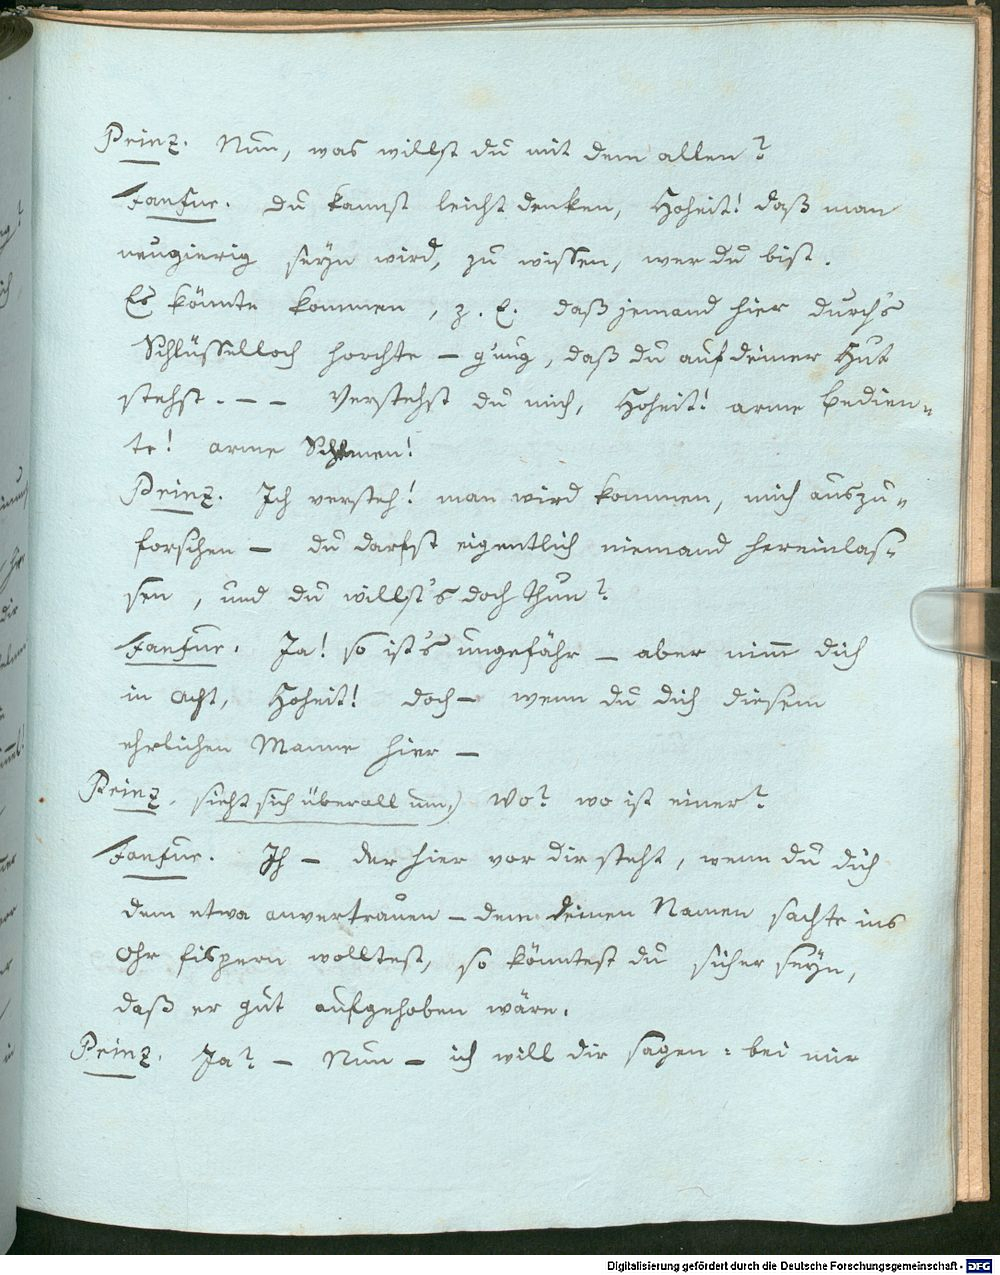 Prinz. Nun, was willst du mit dem allen?
Fanfur. du kannst leicht denken, Hoheit! daß man
neugierig seyn wird, zu wissen, wer du bist.
Es könnte kommen, z. E. daß jemand hier durch's
Schlüsselloch horchte – g'nug, daß du auf deiner Hut
stehst. – – Verstehst du mich, Hoheit! arme Bedien=
te! arme
Prinz. Ich versteh! man wird kommen, mich auszu=
forschen – du darfst eigentlich niemand hereinlas=
sen, und du willst's doch thun?
Fanfur. Ja! so ist's ungefähr – aber nim̅ dich
in acht, Hoheit! doch – wenn du dich diesem
ehrlichen Manne hier –
Prinz. sieht sich überall um,) Wo? wo ist einer?
Fanfur. Ich – der hier vor dir steht, wenn du dich
dem etwa anvertrauen – dem deinen Namen sachte ins
Ohr fispern wolltest, so könntest du sicher seyn,
daß er gut aufgehoben wäre.
Prinz. Ja? – Nun – ich will dir sagen: bei mir
Digitalisierung gefördert durch die Deutsche Forschungsgemeinschaft - DFG